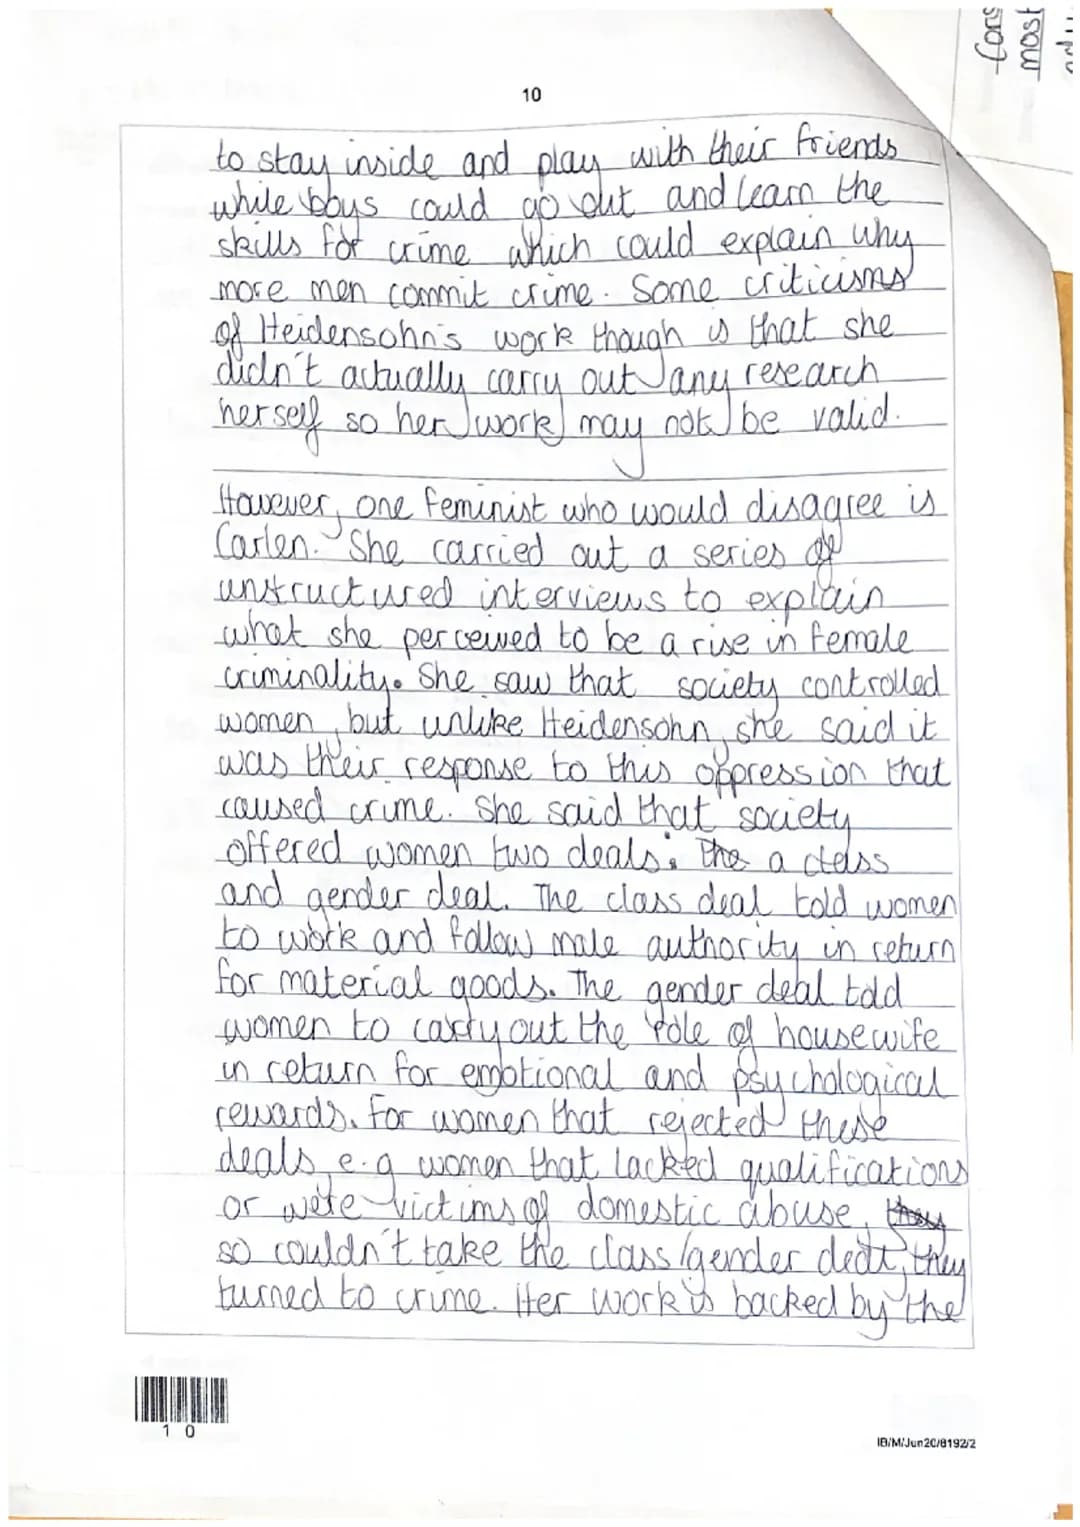 fors
most
10
to stay inside and play with their friends
while boys could go out and learn the
skills for crime which could explain why
more men commit crime. Some criticisms
of Heidensohn's work though is that she
didn't actually carry out any research
herself so her work may not be valid.
However, one feminist who would disagree is
Carlen. She carried out a series of
unstructured interviews to explain
what she perceived to be a rise in female
criminality. She saw that society controlled
women, but unlike Heidensohn, she said it
was their response to this oppression that
caused crime. She said that society
offered women two deals: The a class
and gender deal. The class deal told women
to work and follow male authority in return
for material goods. The gender deal told
women to carry out the role of housewife
in return for emotional and psychological
rewards. For women that rejected these
deals, e.g women that lacked qualifications
or were victims of domestic abuse, they
so couldn't take the class/gender deal, they
turned to crime. Her work is backed by the
1 0
IB/M/Jun20/8192/2